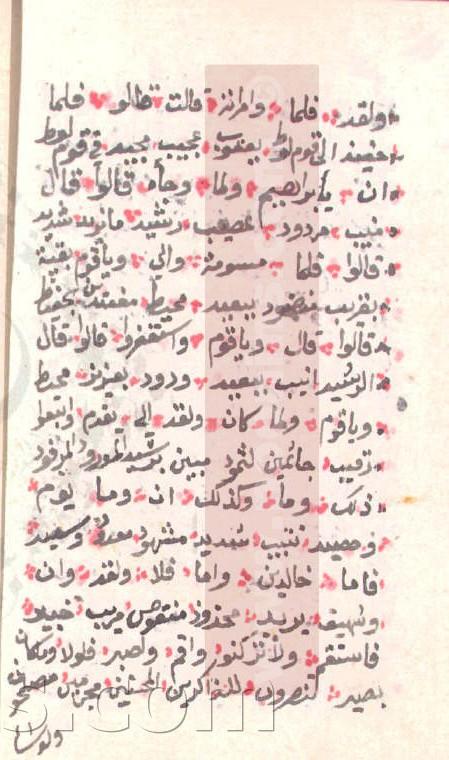 ولقد فلما وامراته قالت قالوا فلما
حنيذ الى قوم لوط يعقوب عجيب مجيد في قوم لوط
ان يا ابراهيم ولما وجاه قالوا قال
منيب مردود عصيب رشيد ما نريد شديد
قالوا فلما مسومة والى وياقوم بقية
بقريب منضود ببعيد محيط مفسدين بحفيظ
قالوا قال وياقوم واستغفروا قالوا قال
الرشيد انيب ببعيد ودود بعزيز محيط
وياقوم ولما كان ولقد الى يقدم واتبعوا
رقيب جاثمين لثمود مبين برشيد المورود المرفود
ذلك وما وكذلك ان وما يوم
وحصيد تتبيب شديد مشهود معدود وسعيد
فاما خالدين واما فلا ولقد وان
وشهيق يريد مجذوذ منقوص مريب خبير
فاستقم ولا تركنوا واقم واصبر فلولا وما كان
بصير تنصرون للذاكرين المحسنين مجرمين مصلحون
ولو شا
s.com